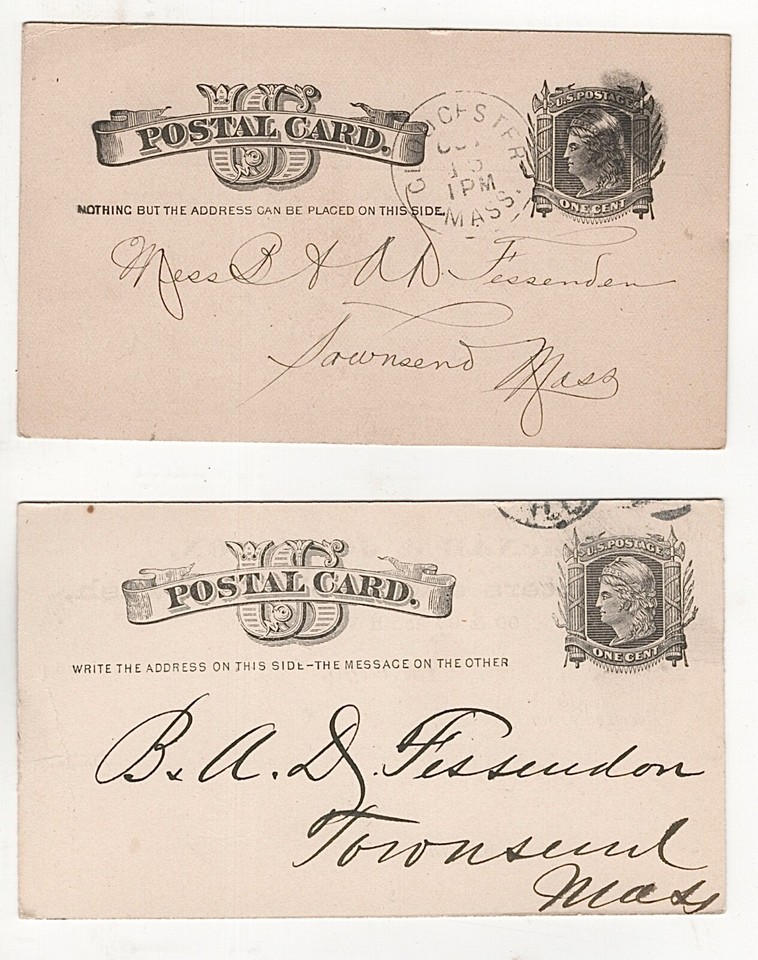 US
POSTAL CARD.
GLOUCESTER
OCT
1 PM
MASS.
U.S. POSTAGE
ONE CENT
NOTHING BUT THE ADDRESS CAN BE PLACED ON THIS SIDE.
Mess B & A D Fessenden
Townsend Mass
US
POSTAL CARD.
U.S. POSTAGE
ONE CENT
WRITE THE ADDRESS ON THIS SIDE-THE MESSAGE ON THE OTHER
B & A. D. Fessendon
Townsend
Mass